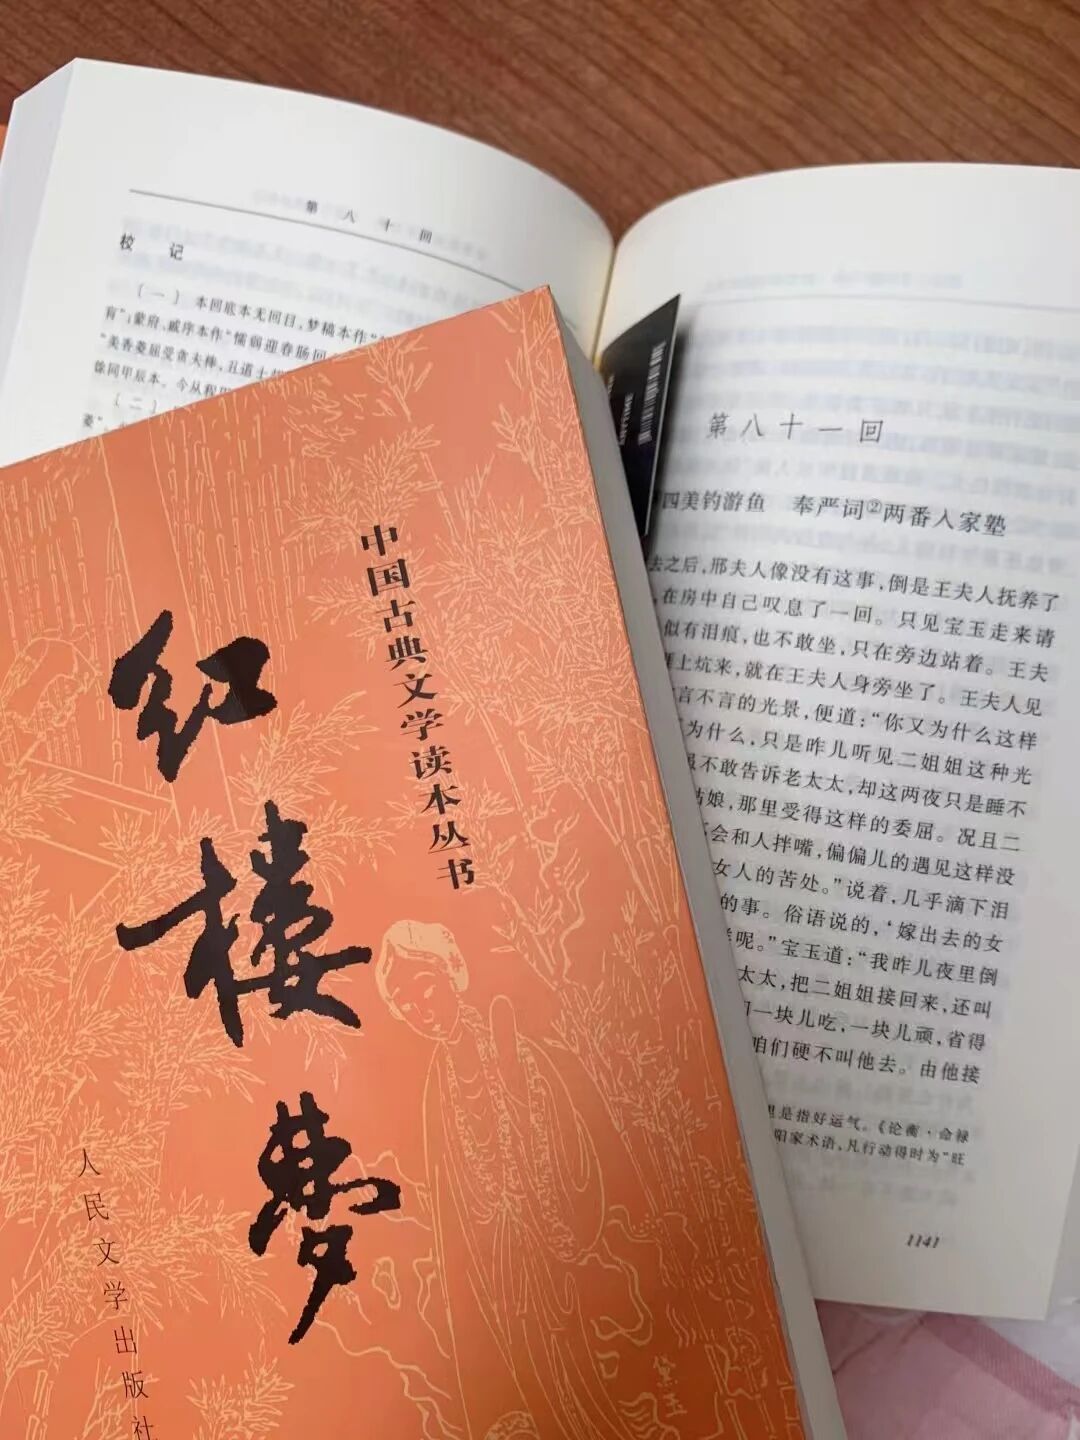 第八十回
校 记
〔一〕 本回底本无回目，梦稿本作“
有”；蒙府、戚序本作“懦弱迎春肠回
“美香菱屈受贪夫棒，
徐同甲辰本。今从程
〔二〕
菱”，
第八十一回
四美钓游鱼 奉严词②两番入家塾
去之后，邢夫人像没有这事，倒是王夫人抚养了
，在房中自己叹息了一回。只见宝玉走来请
似有泪痕，也不敢坐，只在旁边站着。王夫
上炕来，就在王夫人身旁坐了。王夫人见
言不言的光景，便道：“你又为什么这样
为什么，只是昨儿听见二姐姐这种光
不敢告诉老太太，却这两夜只是睡不
姑娘，那里受得这样的委屈。况且二
会和人拌嘴，偏偏儿的遇见这样没
女人的苦处。”说着，几乎滴下泪
的事。俗语说的，‘嫁出去的女
呢。”宝玉道：“我昨儿夜里倒
太太，把二姐姐接回来，还叫
一块儿吃，一块儿顽，省得
咱们硬不叫他去。由他接
里是指好运气。《论衡·命禄
阳家术语，凡行动得时为“旺
1141
中国古典文学读本丛书
红楼梦
人民文学出版社
黛玉